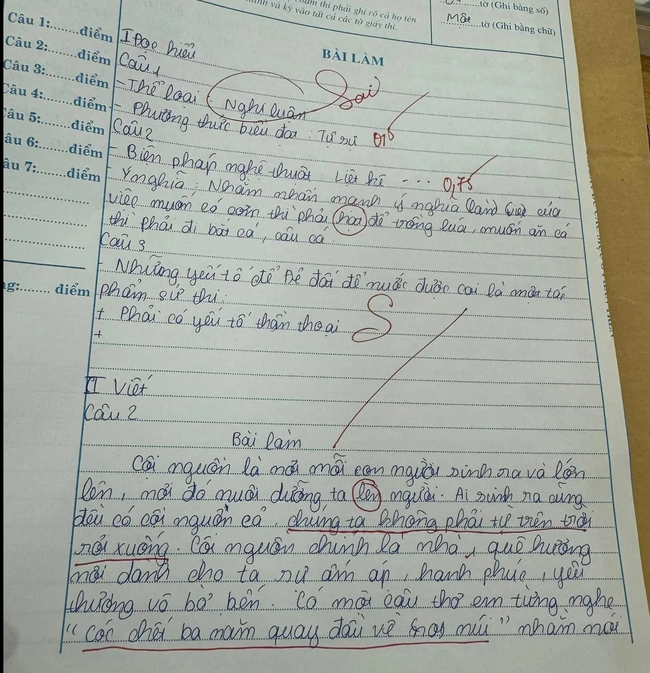 thăm thi phải ghi rõ cả họ tên
mình và ký vào tất cả các tờ giấy thi.
tờ (Ghi bằng số)
Một tờ (Ghi bằng chữ)
BÀI LÀM
Câu 1:.......điểm
Câu 2:.......điểm
Câu 3:.......điểm
Câu 4:.......điểm
âu 5:.......điểm
âu 6:.......điểm
âu 7:.......điểm
ng:.......điểm
I Đọc hiểu
Câu 1
- Thể loại: Nghị luận Sai
- Phương thức biểu đạt: Tự sự 0,5
Câu 2
- Biện pháp nghệ thuật: Liệt kê ... 0,75
- Ý nghĩa: Nhằm nhấn mạnh ý nghĩa của
việc muốn có cơm thì phải để trồng lúa, muốn ăn cá
thì phải đi bắt cá, câu cá
Câu 3
- Những yếu tố để Đẻ đất đẻ nước được coi là một tác
phẩm sử thi:
+ Phải có yếu tố thần thoại S
+
II Viết
Câu 2
Bài làm
Cội nguồn là nơi mỗi con người sinh ra và lớn
lên, nơi đó nuôi dưỡng ta lên người. Ai sinh ra cũng
đều có cội nguồn cả, chúng ta không phải từ trên trời
rơi xuống. Cội nguồn chính là nhà, quê hương
nơi dành cho ta sự ấm áp, hạnh phúc, yêu
thương vô bờ bến. Có một câu thơ em từng nghe
" Cóc chết ba năm quay đầu về núi" nhằm nói